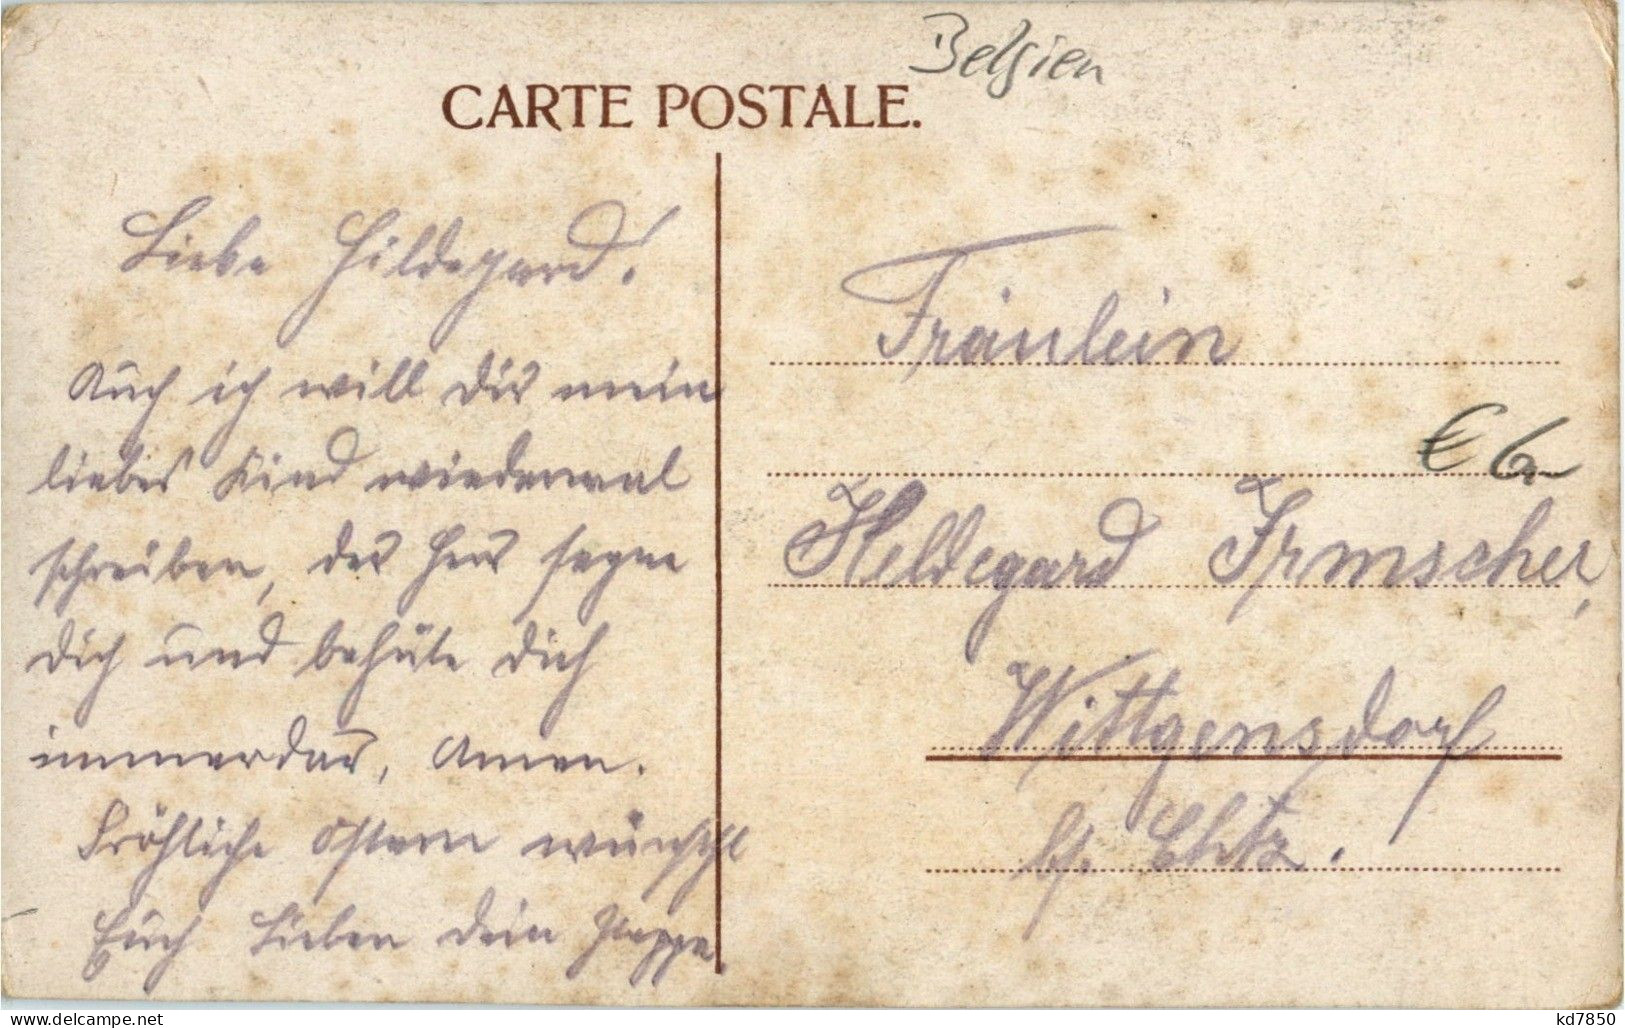 Belgien
CARTE POSTALE.
Liebe Hildegard!
Auch ich will Dir mein
liebes Kind wiedermal
schreiben, der Herr segne
Dich und behüte Dich
immerdar, Amen.
Fröhliche Ostern wünscht
Euch Lieben Dein Pappa
Fräulein
€ 6,-
Hildegard Irmscher,
Wittgensdorf
bf. Chtz.
www.delcampe.net
kd7850